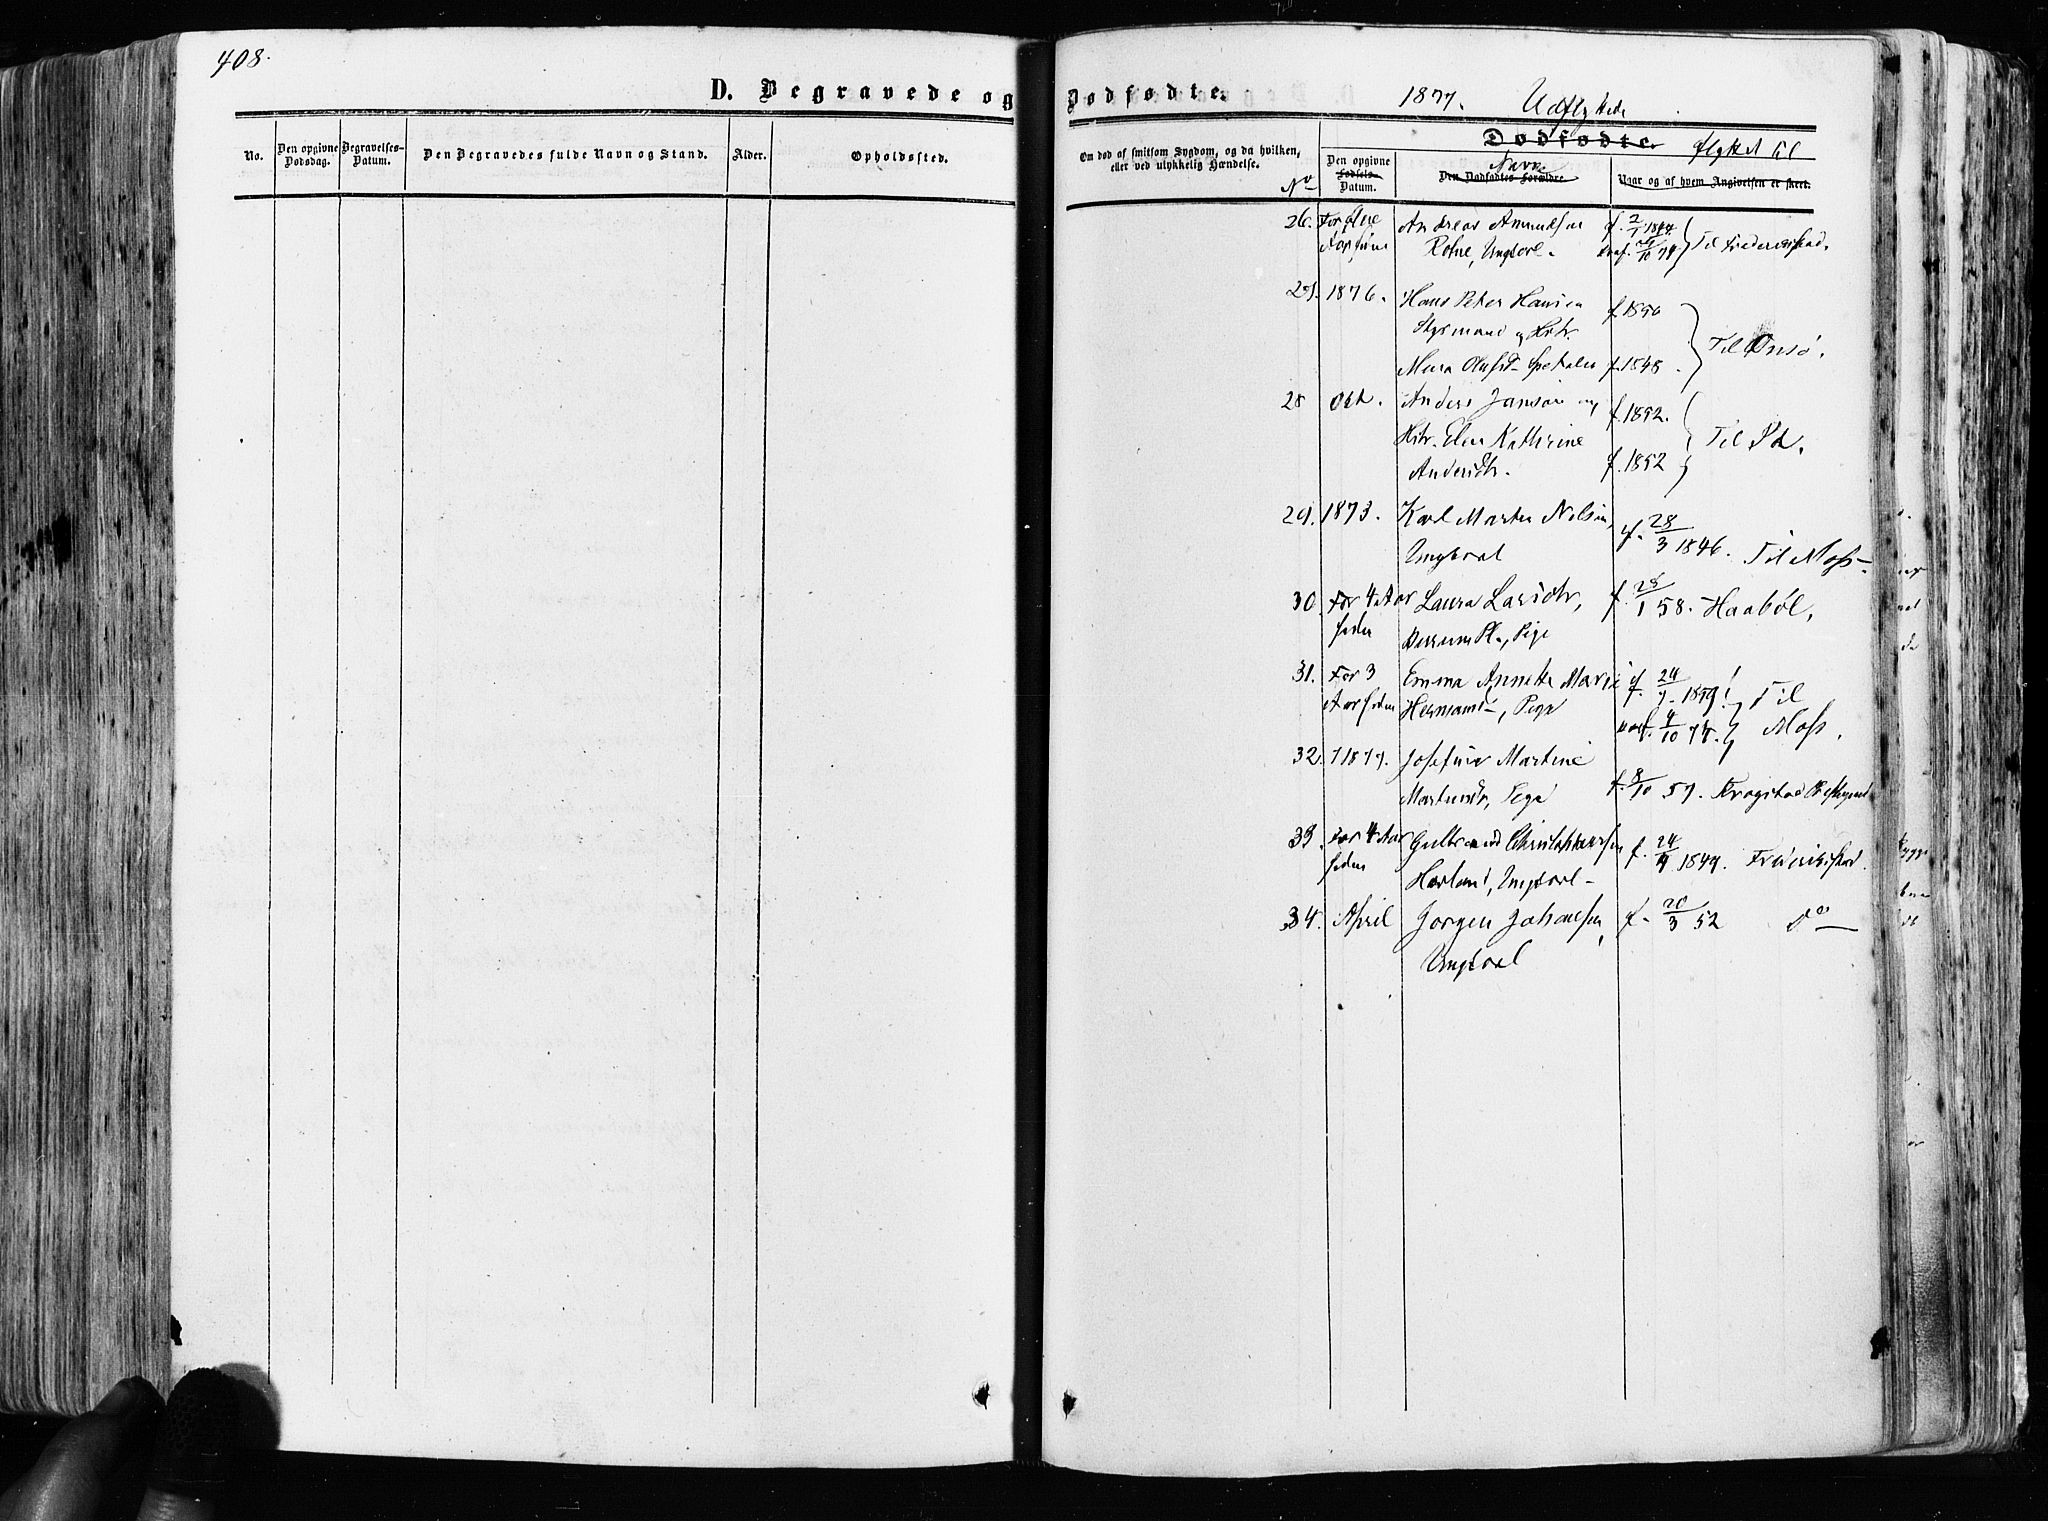 408.
D. Begravede og Dødfødte.
1877. Udflyttede
Dødfødte. flyttet til
No.
Den opgivne Dødsdag.
Begravelses-Datum.
Den Begravedes fulde Navn og Stand.
Alder.
Opholdssted.
Om død af smitsom Sygdom, og da hvilken,
eller ved ulykkelig Hændelse.
No
Den opgivne
Fødsels-
Datum.
Navn
Den Dødfødtes Forældre
Naar og af hvem Angivelsen er skeet.
26. For flere Andreas Amundsen f. 2/1 1844
Aar siden Ungkarl. Til Frederiksstad.
27. 1876. Hans Peter Hansen f. 1850
Styrmand og Hstr. Til Onsø.
f. 1848.
28 Okt. Anders Jansen og f. 1852.
Hstr. Elen Kathrine Til
Andersdtr. f. 1852
29. 1873. Karl Martin Nilsen,
Ungkarl f. 28/3 1846. Til Moss
30. For 4 Aar Laura Larsdtr, f. 28/1 58. Haabøl.
siden Pl., Pige
31. For 3 Emma Annette Marie f. 24/7 1859 Til
Aar siden Hermansd, Pige 4/10 74. Moss.
32. 1877. Josefine Martine
Martinsdtr, Pige f. 8/10 57. Krogstad Præstegjeld
33. For 4 Aar Gulbrand Christophersen f. 24/4 1849 Fredriksstad.
siden Ungkarl
34. April Jørgen Johansen, f. 20/3 52 Do
Ungkarl